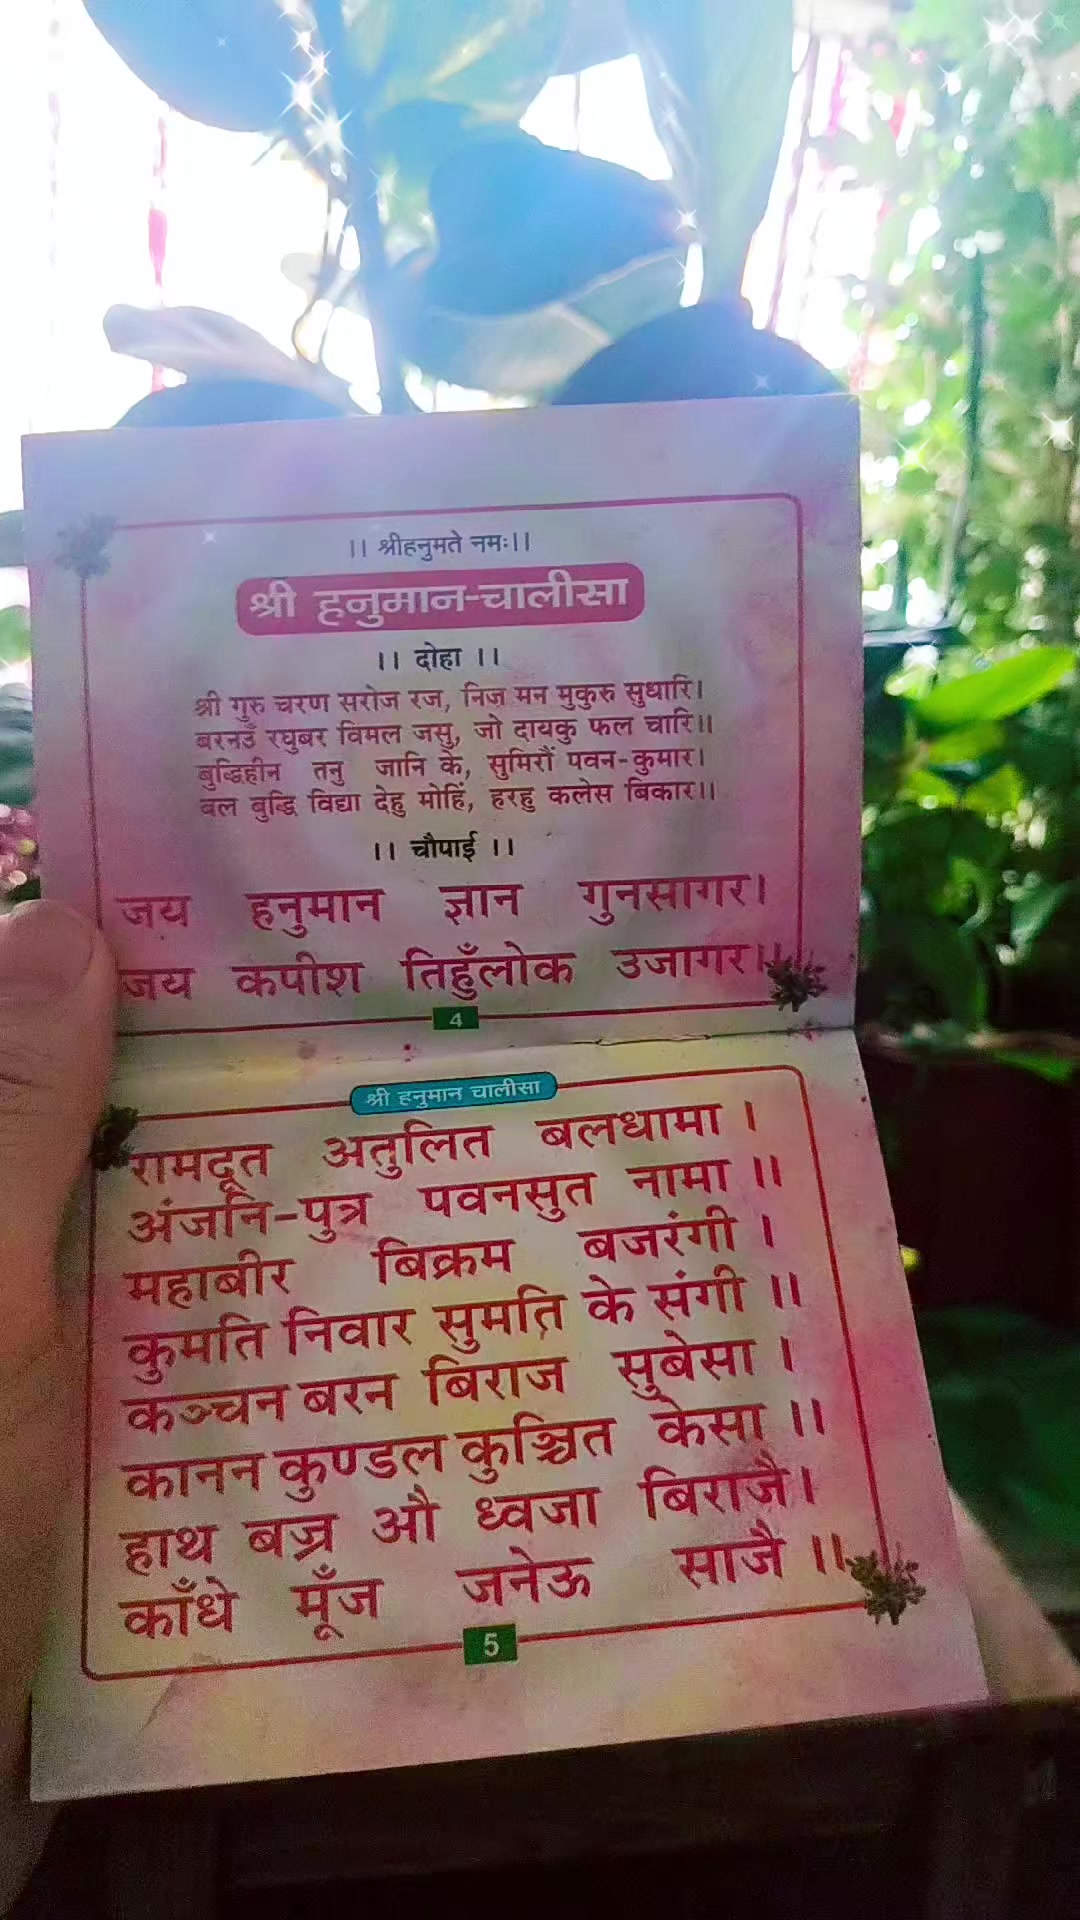 ।। श्रीहनुमते नमः।।
श्री हनुमान-चालीसा
।। दोहा ।।
श्री गुरु चरण सरोज रज, निज मन मुकुरु सुधारि।
बरनउँ रघुबर विमल जसु, जो दायकु फल चारि।।
बुद्धिहीन तनु जानि कै, सुमिरौं पवन-कुमार।
बल बुद्धि विद्या देहु मोहिं, हरहु कलेस बिकार।।
।। चौपाई ।।
जय हनुमान ज्ञान गुनसागर।
जय कपीश तिहुँलोक उजागर।।
4
श्री हनुमान चालीसा
रामदूत अतुलित बलधामा ।
अंजनि-पुत्र पवनसुत नामा ।।
महाबीर बिक्रम बजरंगी ।
कुमति निवार सुमति के संगी ।।
कञ्चन बरन बिराज सुबेसा ।
कानन कुण्डल कुञ्चित केसा ।।
हाथ बज्र औ ध्वजा बिराजै।
काँधे मूँज जनेऊ साजै ।।
5